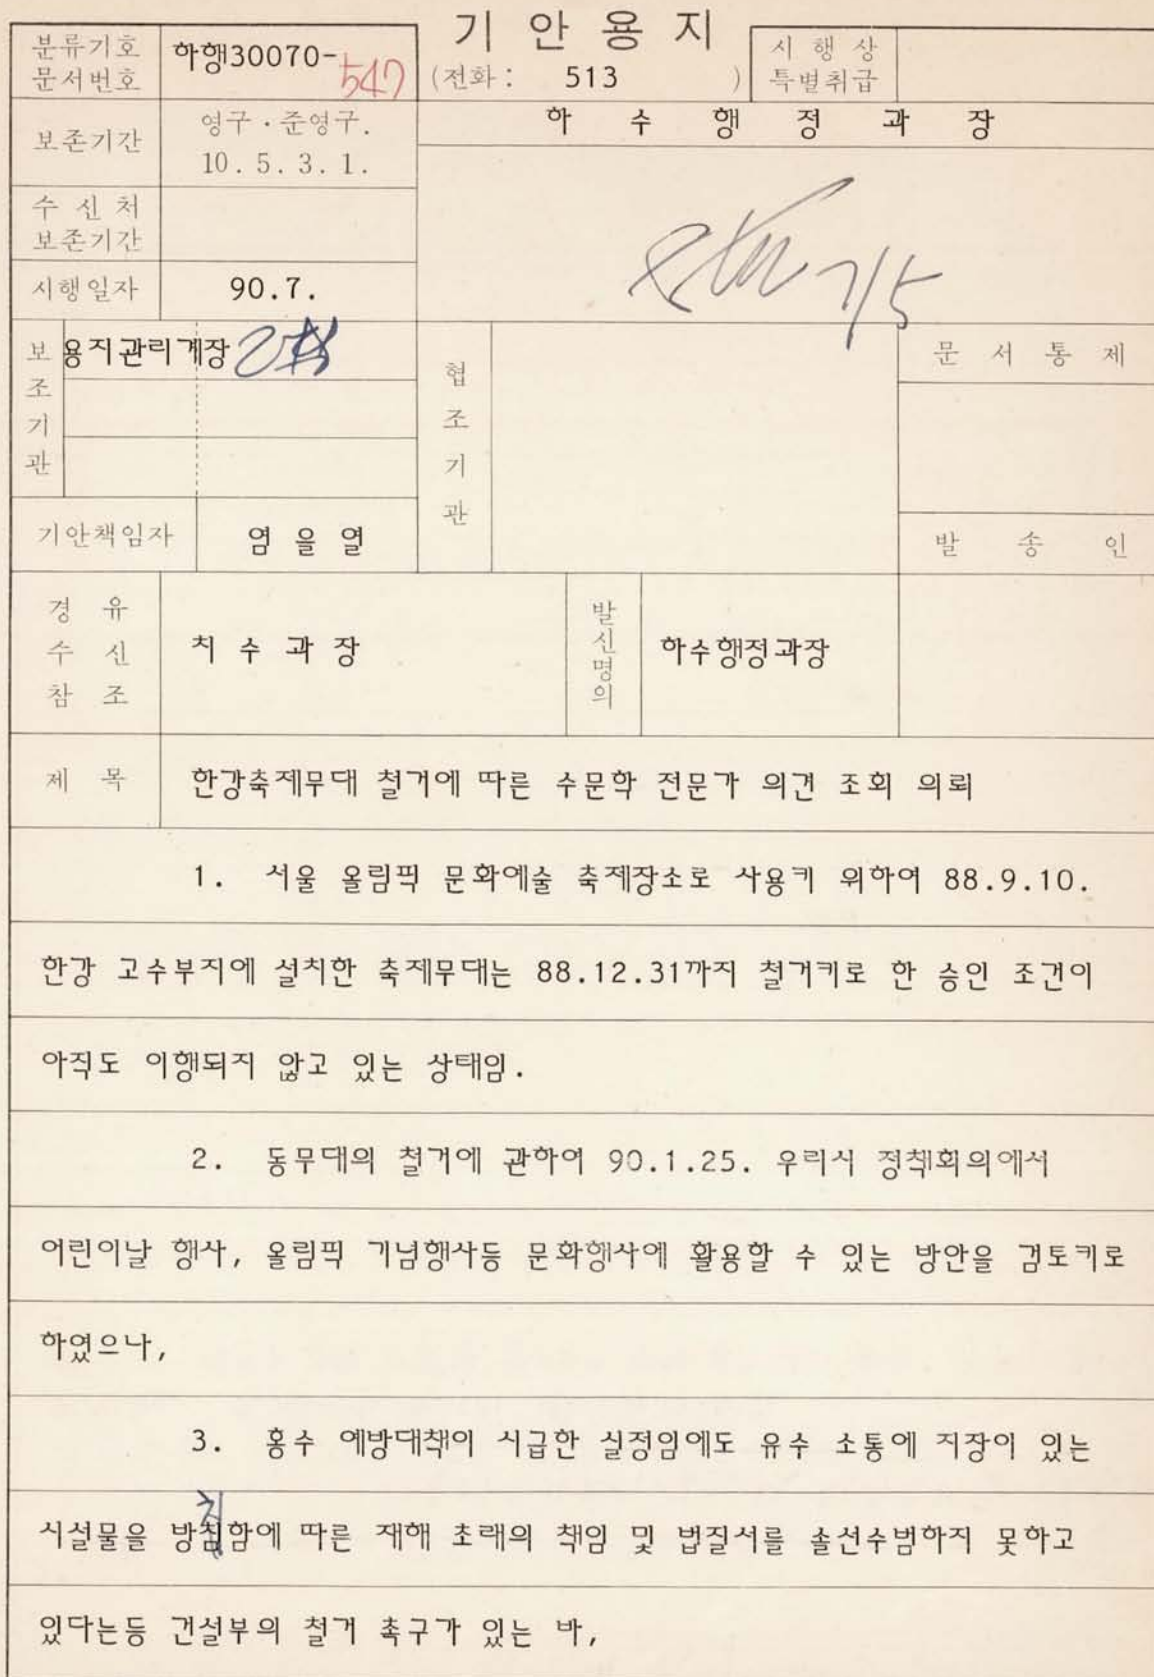 기 안 용 지
분류기호
문서번호
하행30070-
547
(전화 : 513 )
시 행 상
특별취급
보존기간
영구 · 준영구.
10 . 5 . 3 . 1 .
하 수 행 정 과 장
수 신 처
보존기간
시행일자
90.7.
7/5
보조기관
용지관리계장
협조기관
문 서 통 제
기안책임자
염 을 열
발 송 인
경 유
수 신
참 조
치 수 과 장
발신명의
하수행정과장
제 목
한강축제무대 철거에 따른 수문학 전문가 의견 조회 의뢰
1. 서울 올림픽 문화예술 축제장소로 사용키 위하여 88.9.10.
한강 고수부지에 설치한 축제무대는 88.12.31까지 철거키로 한 승인 조건이
아직도 이행되지 않고 있는 상태임.
2. 동무대의 철거에 관하여 90.1.25. 우리시 정책회의에서
어린이날 행사, 올림픽 기념행사등 문화행사에 활용할 수 있는 방안을 검토키로
하였으나,
3. 홍수 예방대책이 시급한 실정임에도 유수 소통에 지장이 있는
시설물을 방치함에 따른 재해 초래의 책임 및 법질서를 솔선수범하지 못하고
있다는등 건설부의 철거 촉구가 있는 바,